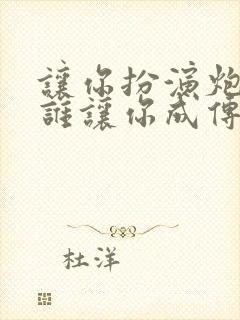 讓你扮演炮
誰讓你成傳
杜洋